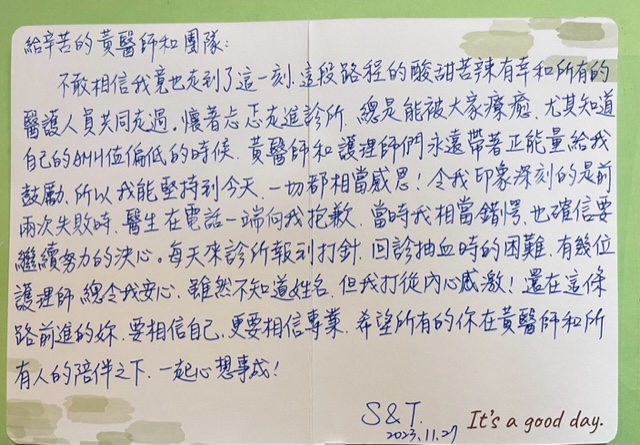 給辛苦的黃醫師和團隊:
不敢相信我竟也走到了這一刻,這段路程的酸甜苦辣有幸和所有的
醫護人員共同走過。懷著忐忑走進診所,總是能被大家療癒,尤其知道
自己的AMH值偏低的時候,黃醫師和護理師們永遠帶著正能量給我
鼓勵,所以我能堅持到今天,一切都相當感恩!令我印象深刻的是前
兩次失敗時,醫生在電話一端向我抱歉,當時我相當錯愕,也確信要
繼續努力的決心。每天來診所報到打針,回診抽血時的困難,有幾位
護理師總令我安心,雖然不知道姓名,但我打從內心感激!還在這條
路前進的妳,要相信自己,更要相信專業,希望所有的你在黃醫師和所
有人的陪伴之下,一起心想事成!
S&T.
2023.11.27
It's a good day.